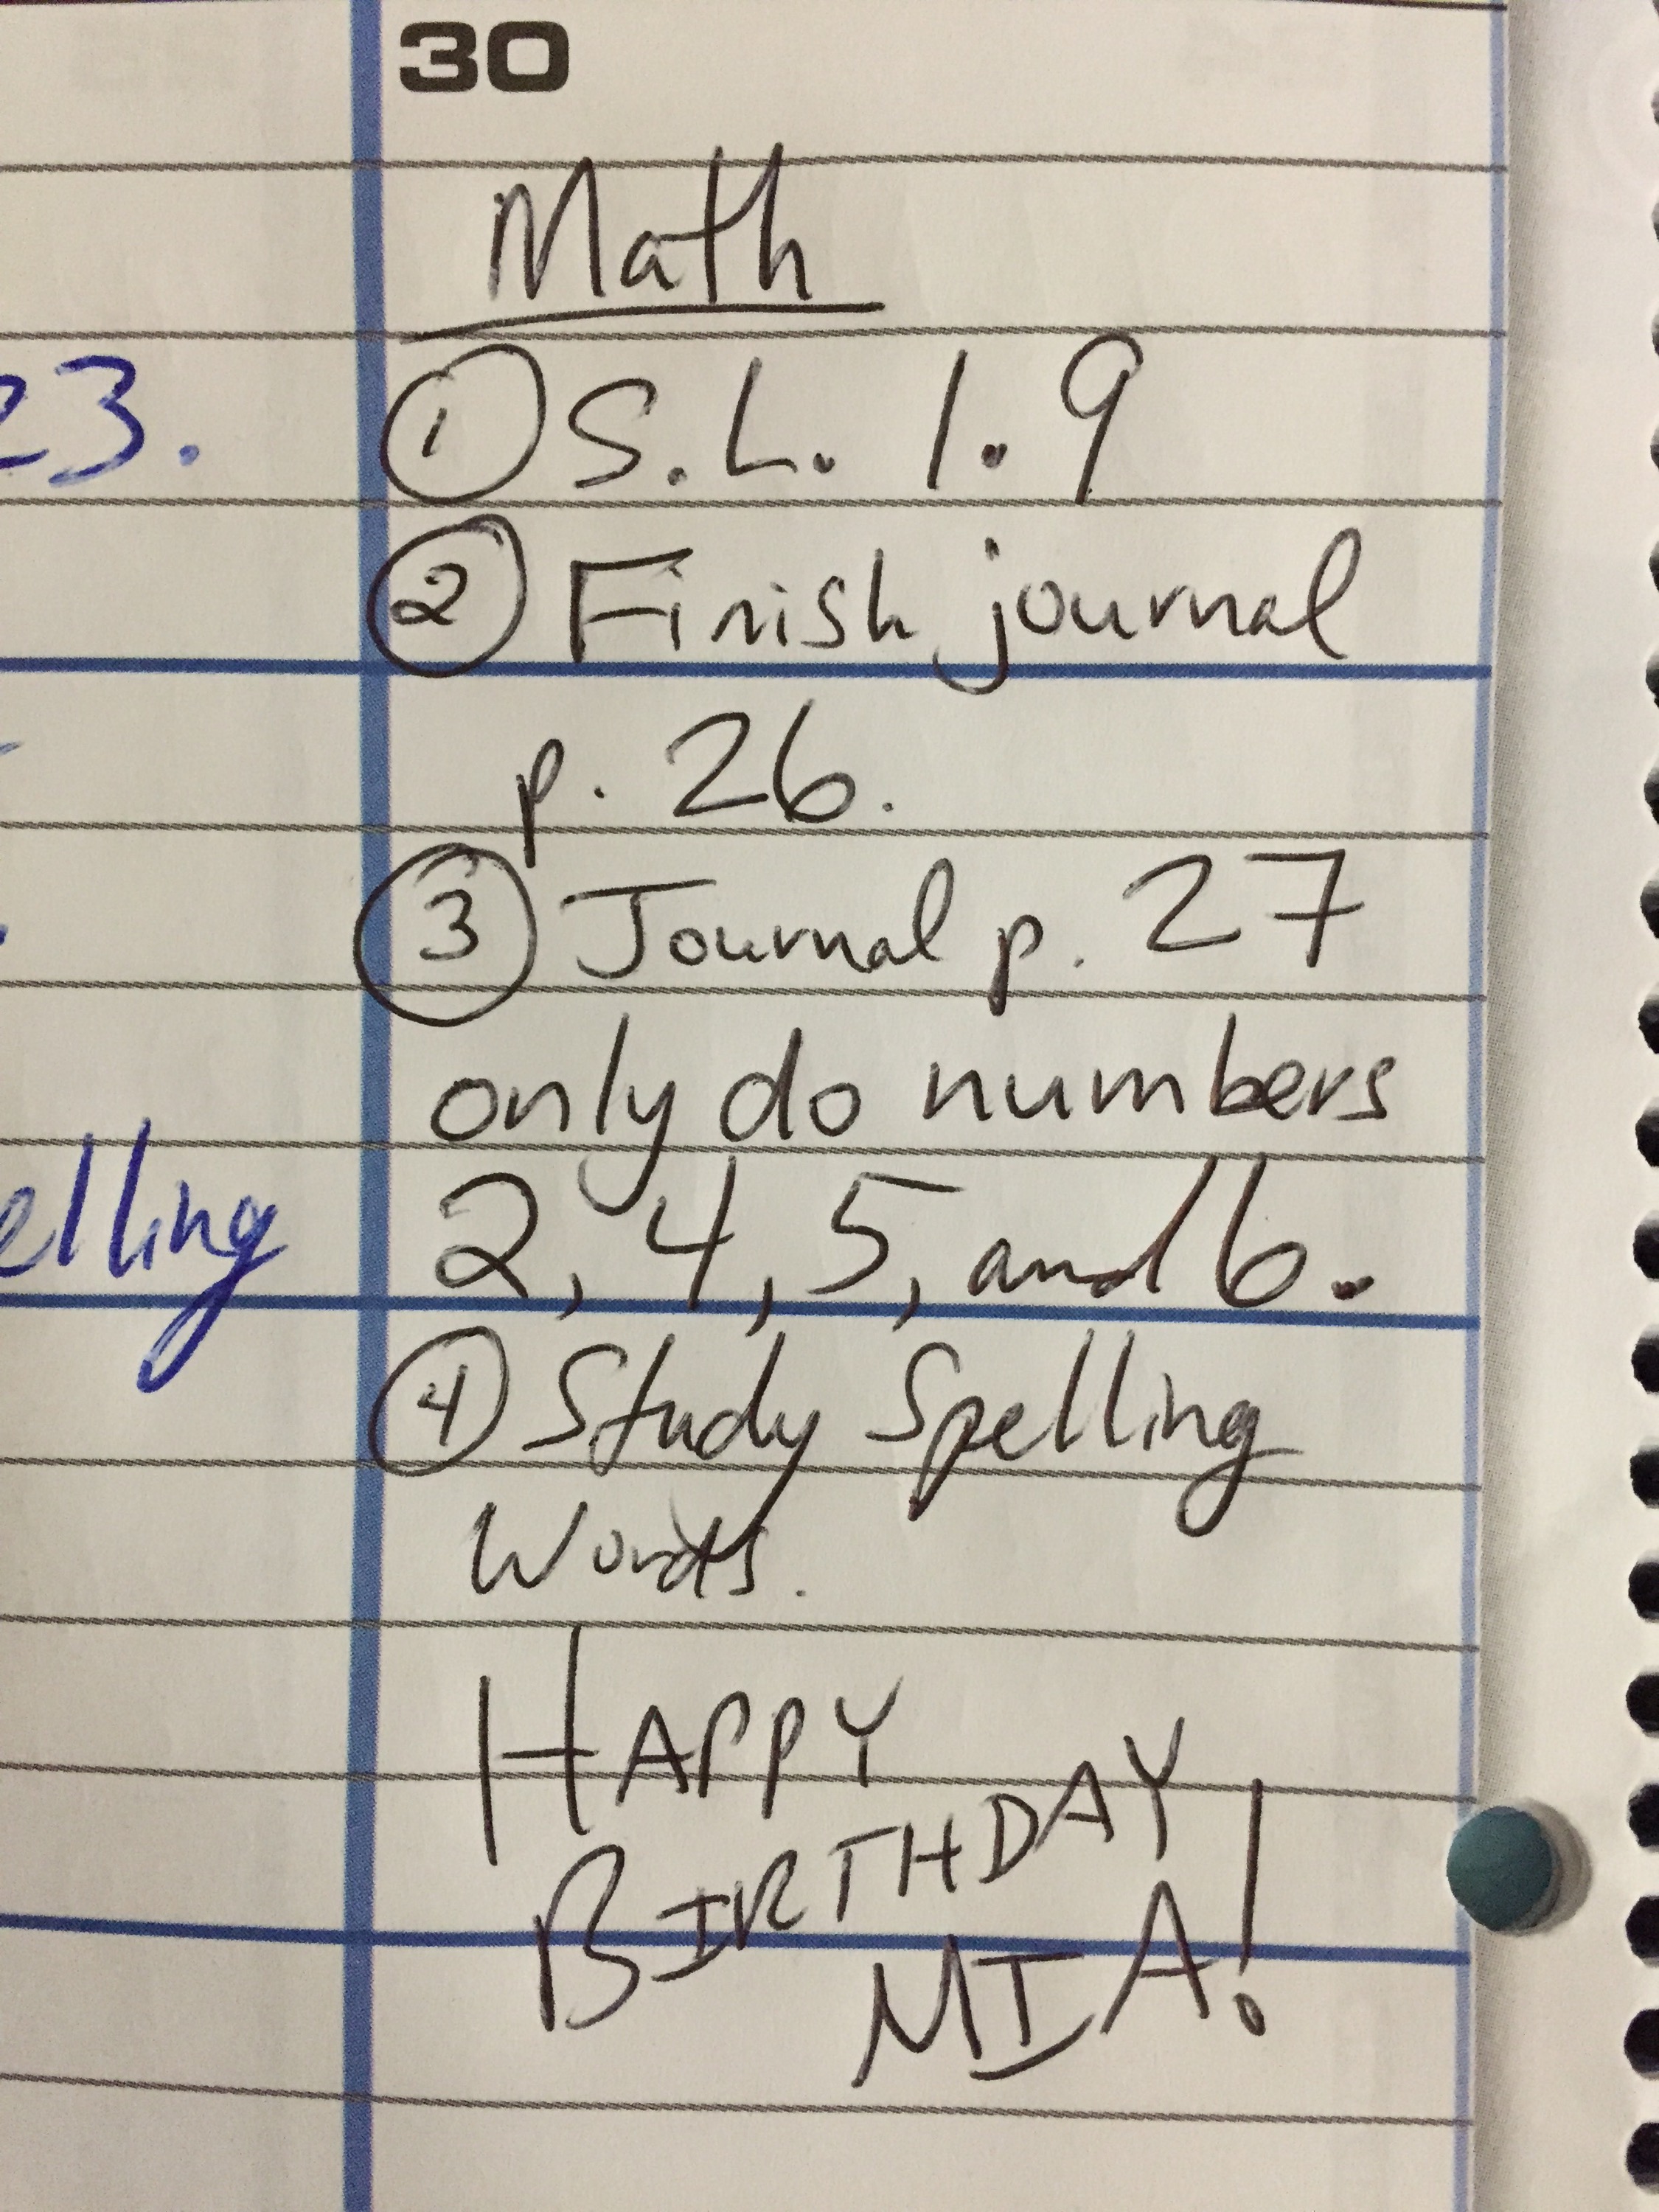 30
Math
23.
① S.L. 1.9
② Finish journal
p. 26.
③ Journal p. 27
only do numbers
elling
2, 4, 5, and 6.
④ Study Spelling
Words.
HAPPY
BIRTHDAY
MIA!